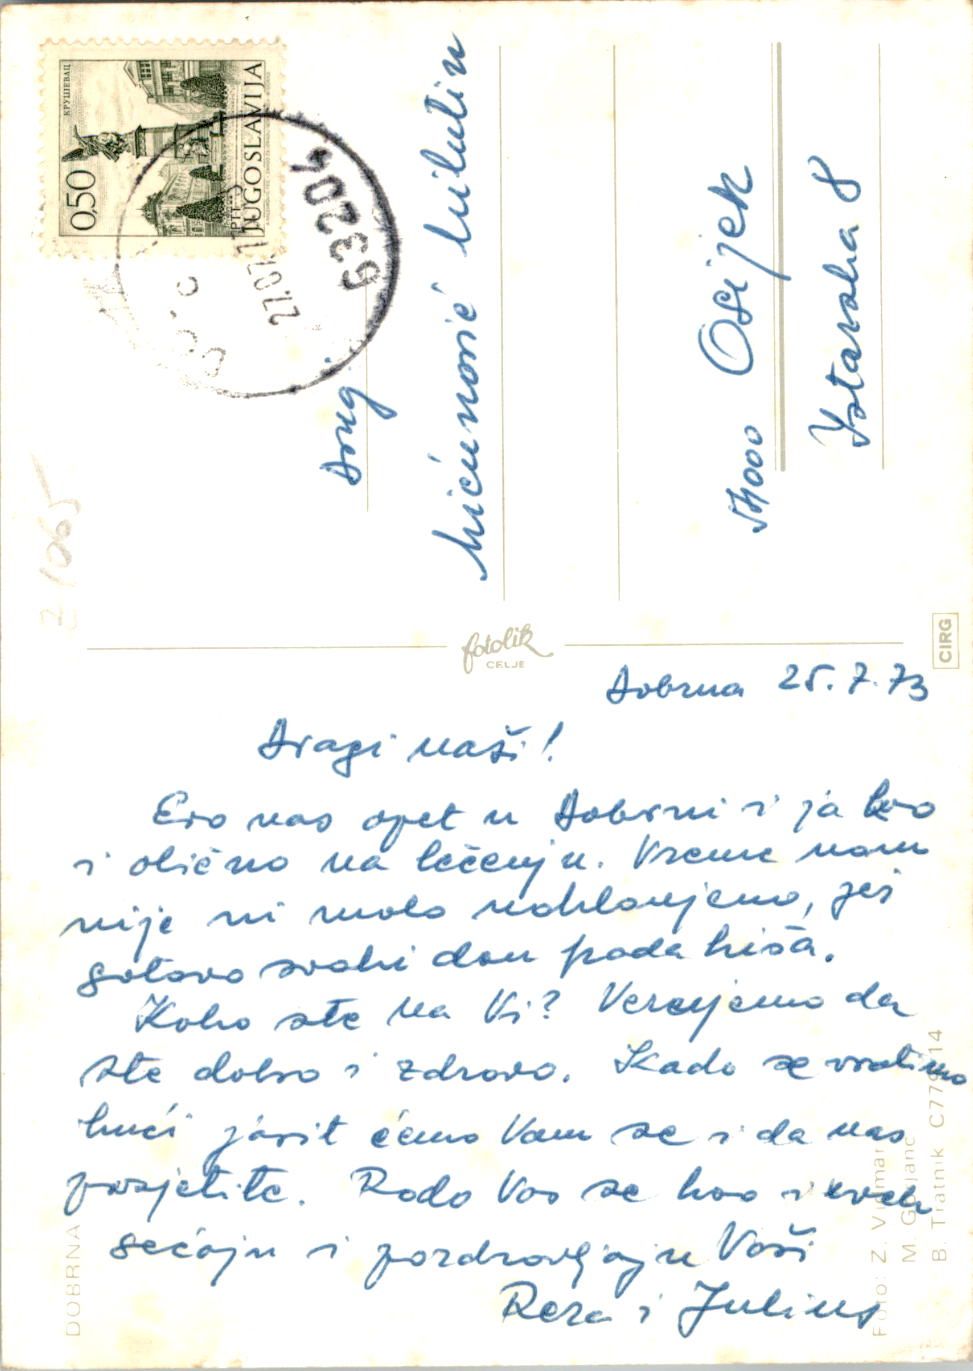 КРУШЕВАЦ
0,50
JUGOSLAVIJA
PTT
63204
27.07
Drug.
Mićunović Milutin
54000 Osijek
Istarska 8
21065
fotolik
CELJE
CIRG
Dobrna 25.7.73
Dragi naši!
Evo nas opet u Dobrni i ja kao
i obično na lečenju. Vreme nam
nije ni malo naklonjeno, jer
gotovo svaki dan pada kiša.
Kako ste na Vi? Verujemo da
ste dobro i zdravo. Kada se vratimo
kući javit ćemo Vam se i da nas
posjetite. Rado Vas se kao i uvek
sećaju i pozdravljaju Vaši
Reza i Julius
DOBRNA
Foto: Z. Vidmar
M. Garjanc
B. Tratnik